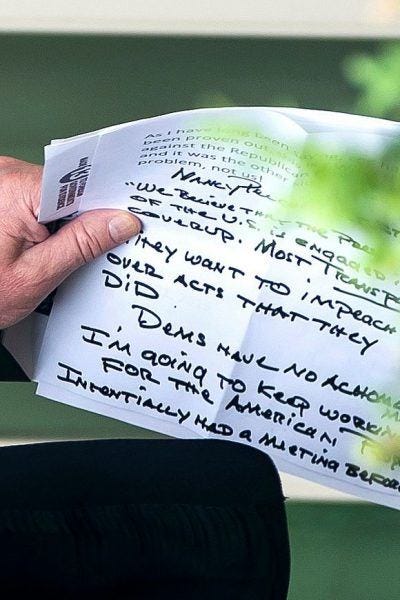 As I have long been
been proven out
against the Republican
and it was the other
problem, not us!
NANCY
"WE BELIEVE THAT THE
OF THE U.S. IS ENGAGED
COVERUP. MOST
THEY WANT TO IMPEACH
OVER ACTS THAT THEY
DID
DEMS HAVE NO
I'M GOING TO KEEP WORKIN
FOR THE AMERICAN
INTENTIALLY HAD A MEETING BEFOR